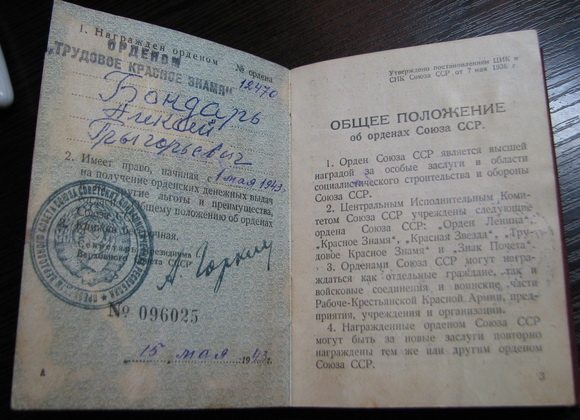 1. Награжден орденом
ОРДЕНОМ
№ ордена
"ТРУДОВОЕ КРАСНОЕ ЗНАМЯ"
12470
Бондарь
Алексей
Грыгорьевич
2. Имеет право, начиная
1 мая 1943
на получение орденских денежных выдач
льготы и преимущества,
общему положению об орденах
Секретарь Президиума
Верховного Совета СССР
А Горкин
№ 096025
15 мая 1943 г.
А
Утверждено постановлением ЦИК и
СНК Союза ССР от 7 мая 1936 г.
ОБЩЕЕ ПОЛОЖЕНИЕ
об орденах Союза ССР.
1. Орден Союза ССР является высшей
наградой за особые заслуги в области
социалистического строительства и обороны
Союза ССР.
2. Центральным Исполнительным Коми-
тетом Союза ССР учреждены следующие
ордена Союза ССР: „Орден Ленина",
„Красное Знамя", „Красная Звезда", „Тру-
довое Красное Знамя" и „Знак Почета".
3. Орденами Союза ССР могут на-
граждаться как отдельные граждане, так и
войсковые соединения и воинские части
Рабоче-Крестьянской Красной Армии, пред-
приятия, учреждения и организации.
4. Награжденные орденом Союза ССР
могут быть за новые заслуги повторно
награждены тем же или другим орденом
Союза ССР.
3